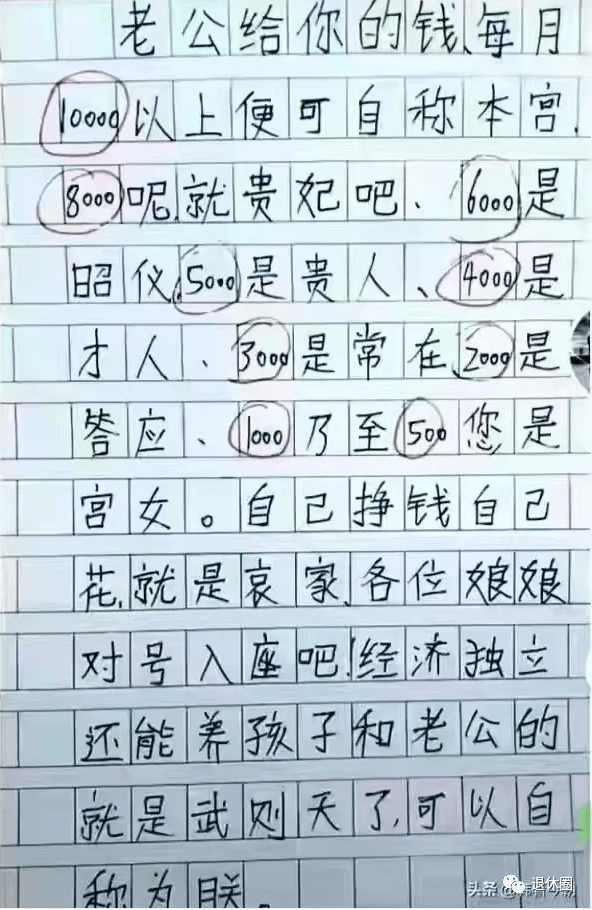 老公给你的钱、每月
10000以上便可自称本宫.
8000呢就贵妃吧、6000是
昭仪.5000是贵人、4000是
才人、3000是常在2000是
答应、1000乃至500您是
宫女。自己挣钱自己
花,就是哀家,各位娘娘
对号入座吧!经济独立
还能养孩子和老公的
就是武则天了,可以自
称为朕。
头条 @
退休圈